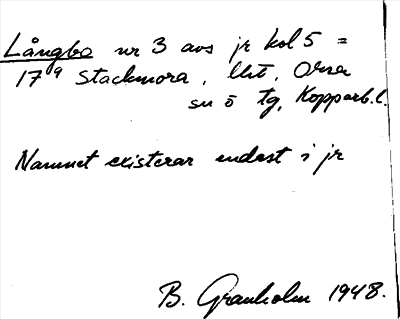 Långbo nr 3 avs jr kol 5 =
17⁹ Stackmora, Orsa
sn o tg, Kopparb. l.
Namnet existerar endast i jr
B. Granholm 1948.